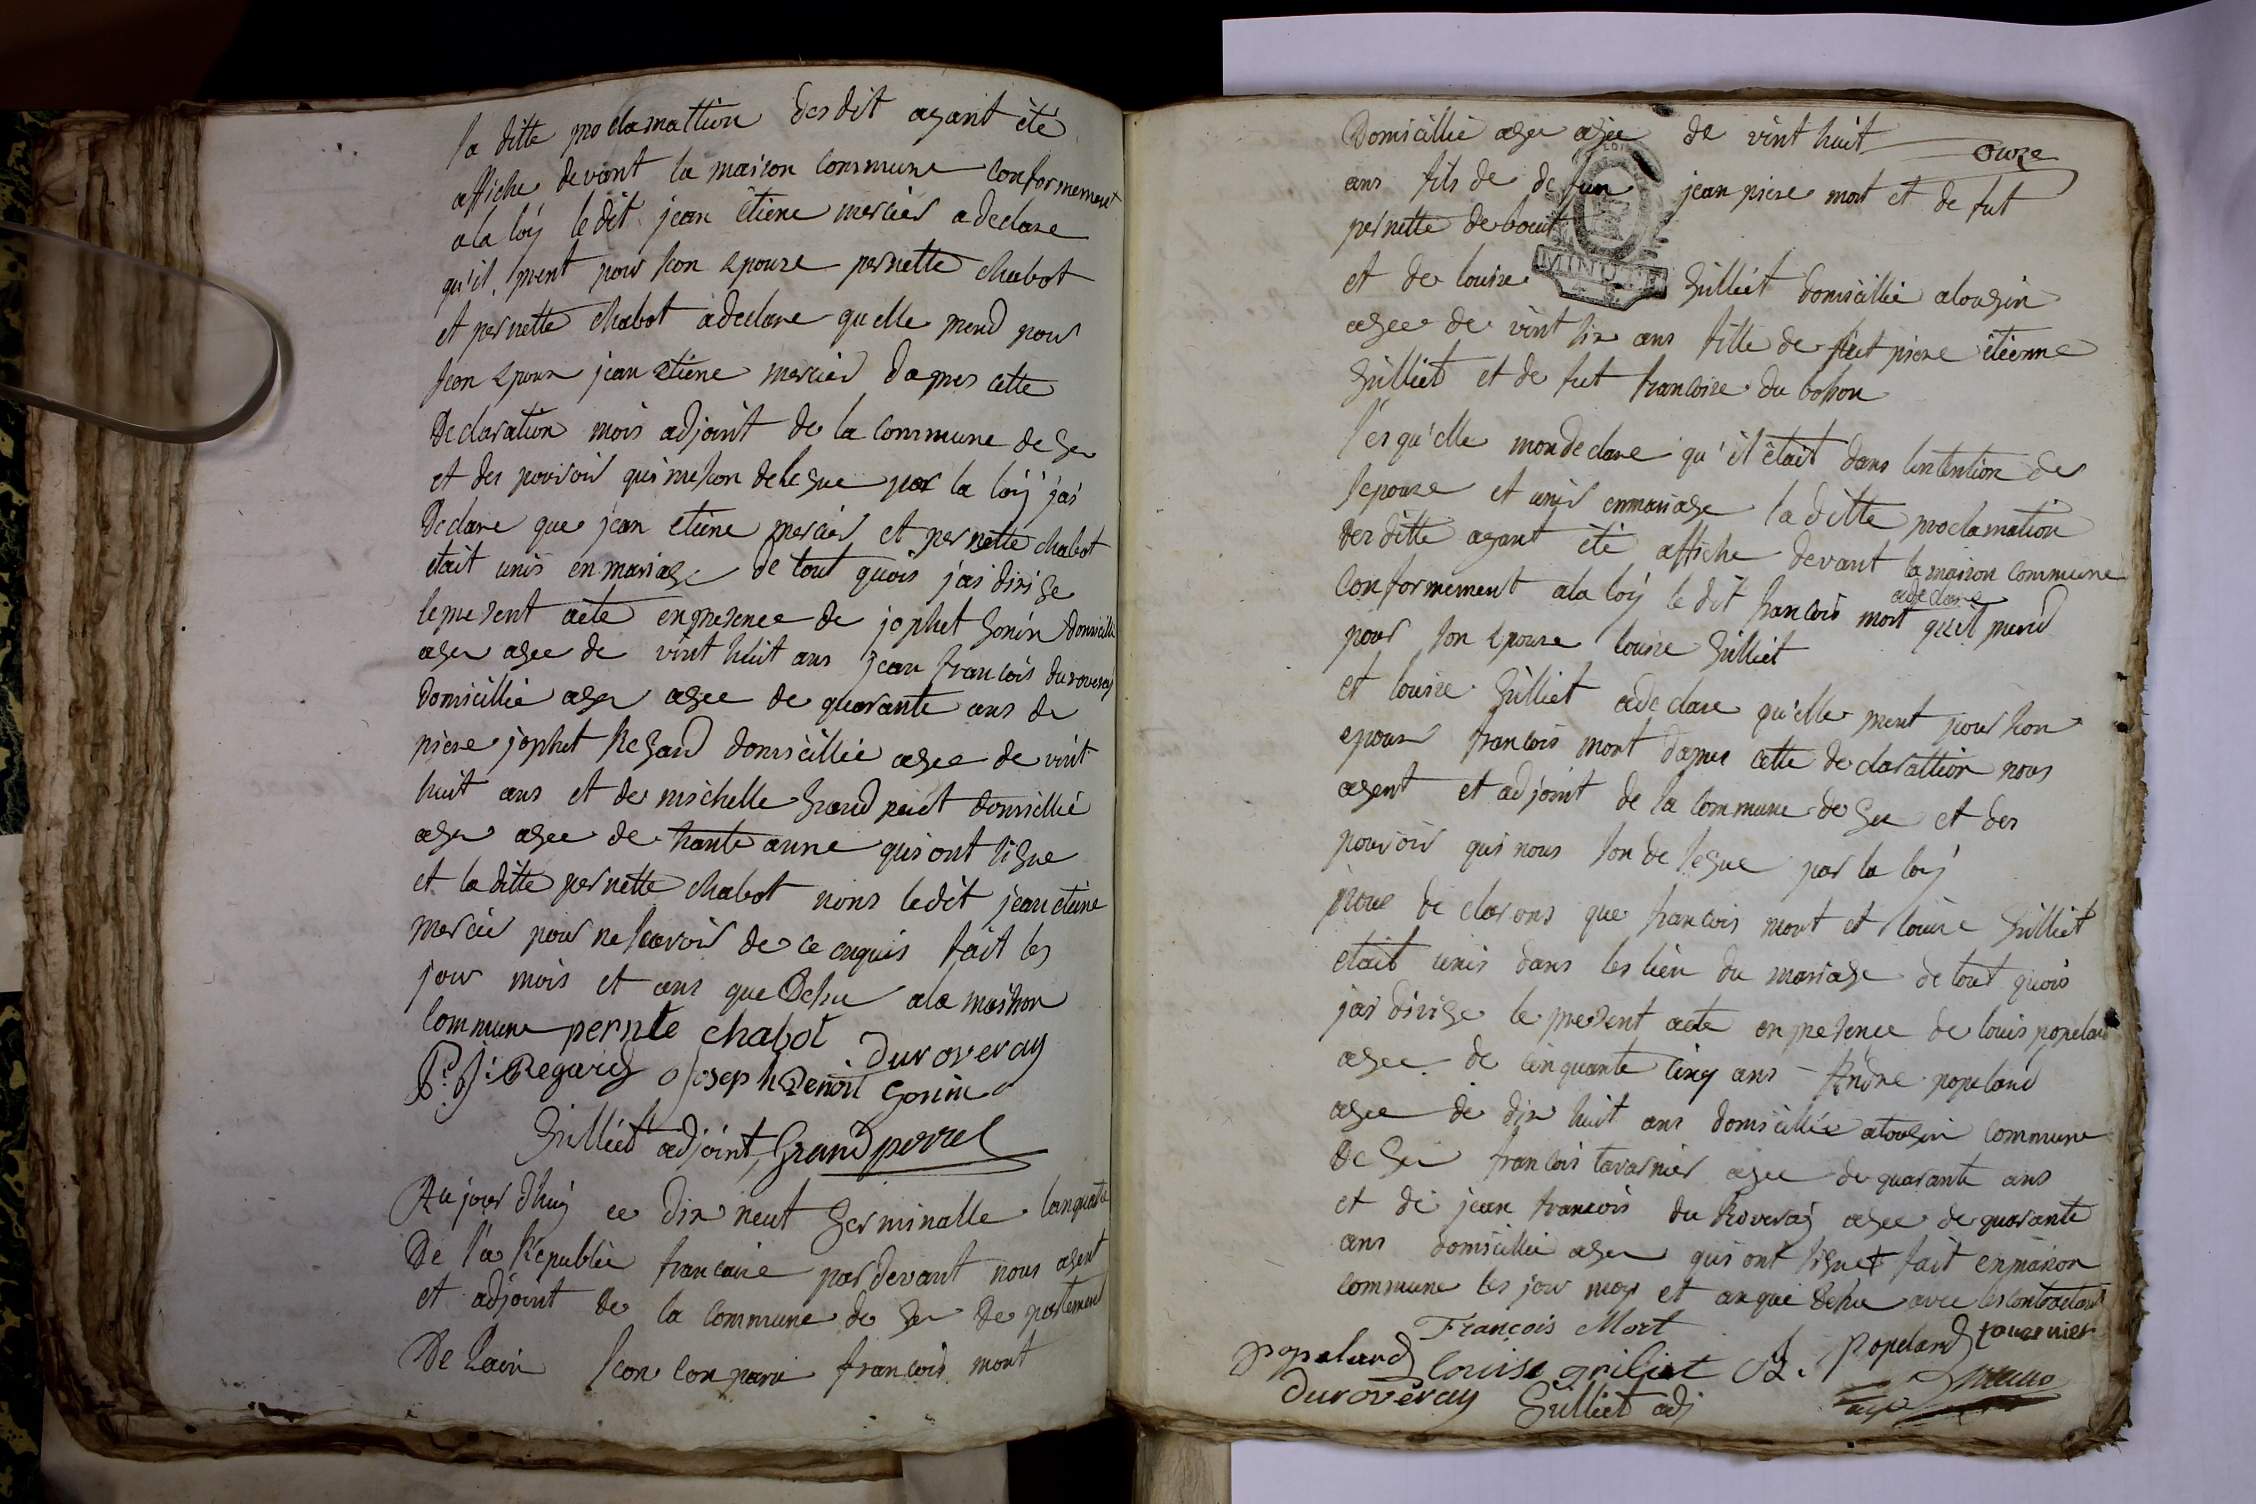 la ditte proclamattion desdit agant été
affiche devant la maison commune conformement
ala loÿ ledit jean étiene mercier a declare
qu'il prent pour son epouze pernette chabot
et pernette chabot a declare qu'elle prend pour
son epoux jean etiene mercier dapres cette
Declaration mois adjoint de la commune de Gex
et des pouvoir qui me son delegue par la loÿ j'ai
Declare que jean etiene mercier et pernette chabot
était unis en mariage de tout quois j'ai dirige
le present acte en presence de jophet Gonin domicillie
a Gex agee de vint huit ans jean francois duroveray
Domicillie a Gex agee de quarante ans de
piere jophet Regard domicillie agee de vint
huit ans et de michelle Grand domicillié
a Gex agee de trante anne qui ont signe
et la ditte pernette chabot nons ledit jean etiene
mercier pour ne savoir de ce enquis fait les
jour mois et ans que Desu a la maison
Commune pernete chabot
Duroveray
Pre Jh Regard Joseph Benoit Gonin
Gilliet adjoint, Grandperret
Aujourdhuÿ ce dix neuf Germinalle lanquatre
De la Republie francaise par devant nous agent
et adjoint de la commune de Gex Departement
De Lain son conparu francois mort
Domicillié a Gex agee de vint huit
onze
ans fils de defun jean piere mort et de fut
pernette debout
MINUTE
et de louise Gilliet domicillie a tougin
agee de vint six ans fille de fut piere étienne
Gilliet et de fut francoise du bosson
lesqu'elle mon declare qu'il était dans lintention de
se pouze et unir en mariage la ditte proclamation
desditte agant été affiche devant la maison commune
Conformement ala loÿ le dit francois mort a declare qu'il prend
pour son epouze louise Gilliet
et louise Gilliet a declare qu'elle prent pour son
epoux francois mort dapres cette declarattion nous
agent et adjoint de la commune de Gex et des
pouvoir qui nous son delegue par la loÿ
nous declarons que francois mort et louise Gilliet
etait unis dans les lien du mariage de tout quois
jai dirige le present acte en presence de louis popeland
agee de cinquante cinq ans Andre popeland
agee de dix huit ans domicillié a tougin commune
De Gex francois tavarnier agee de quarante ans
et de jean francois du Roveray agee de quarante
ans domicillie a Gex qui ont signet fait en maison
commune les jour moy et an que Desu avec les contractant
François Mort
popeland Louise Griliet A. Popeland tavernier
duroveray Gilliet adj